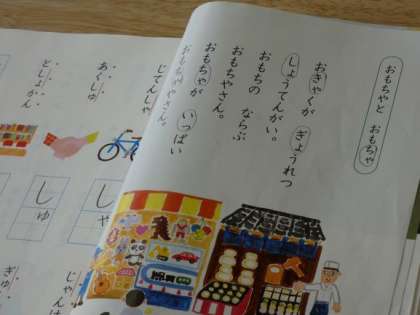 おもちやと おもちゃ
おきゃくが ぎょうれつ
しょうてんがい。
おもちの ならぶ
おもちやさん。
おもちゃが いっぱい
おもちゃやさん。
じてんしゃ
あくしゅ
としょかん
しゃ
しゅ
じゃんけ
ぎゅ